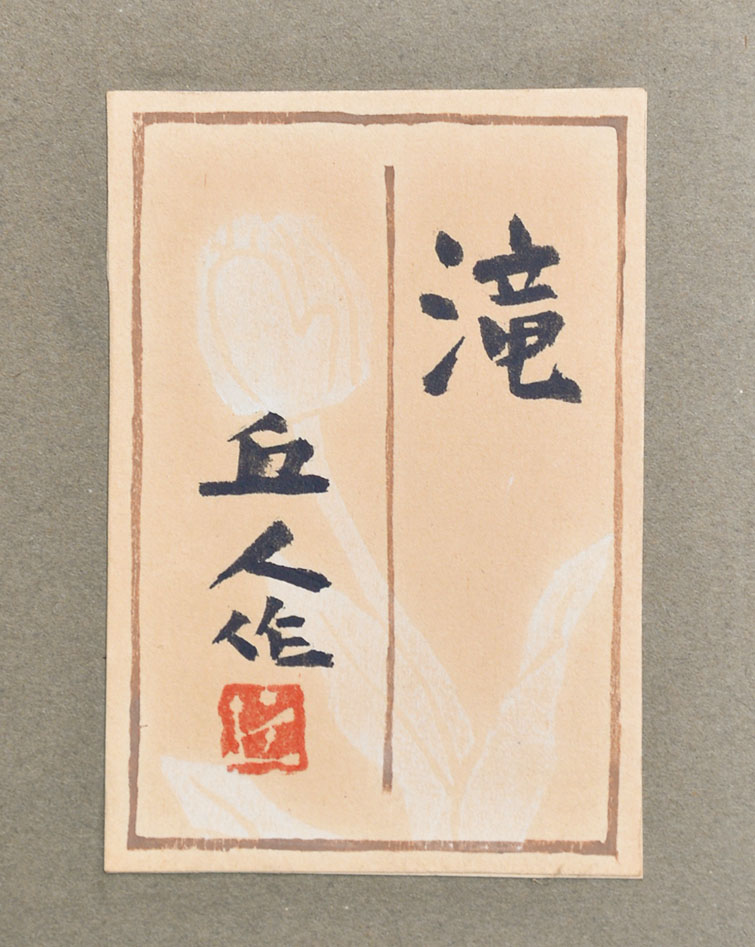 滝
丘人作